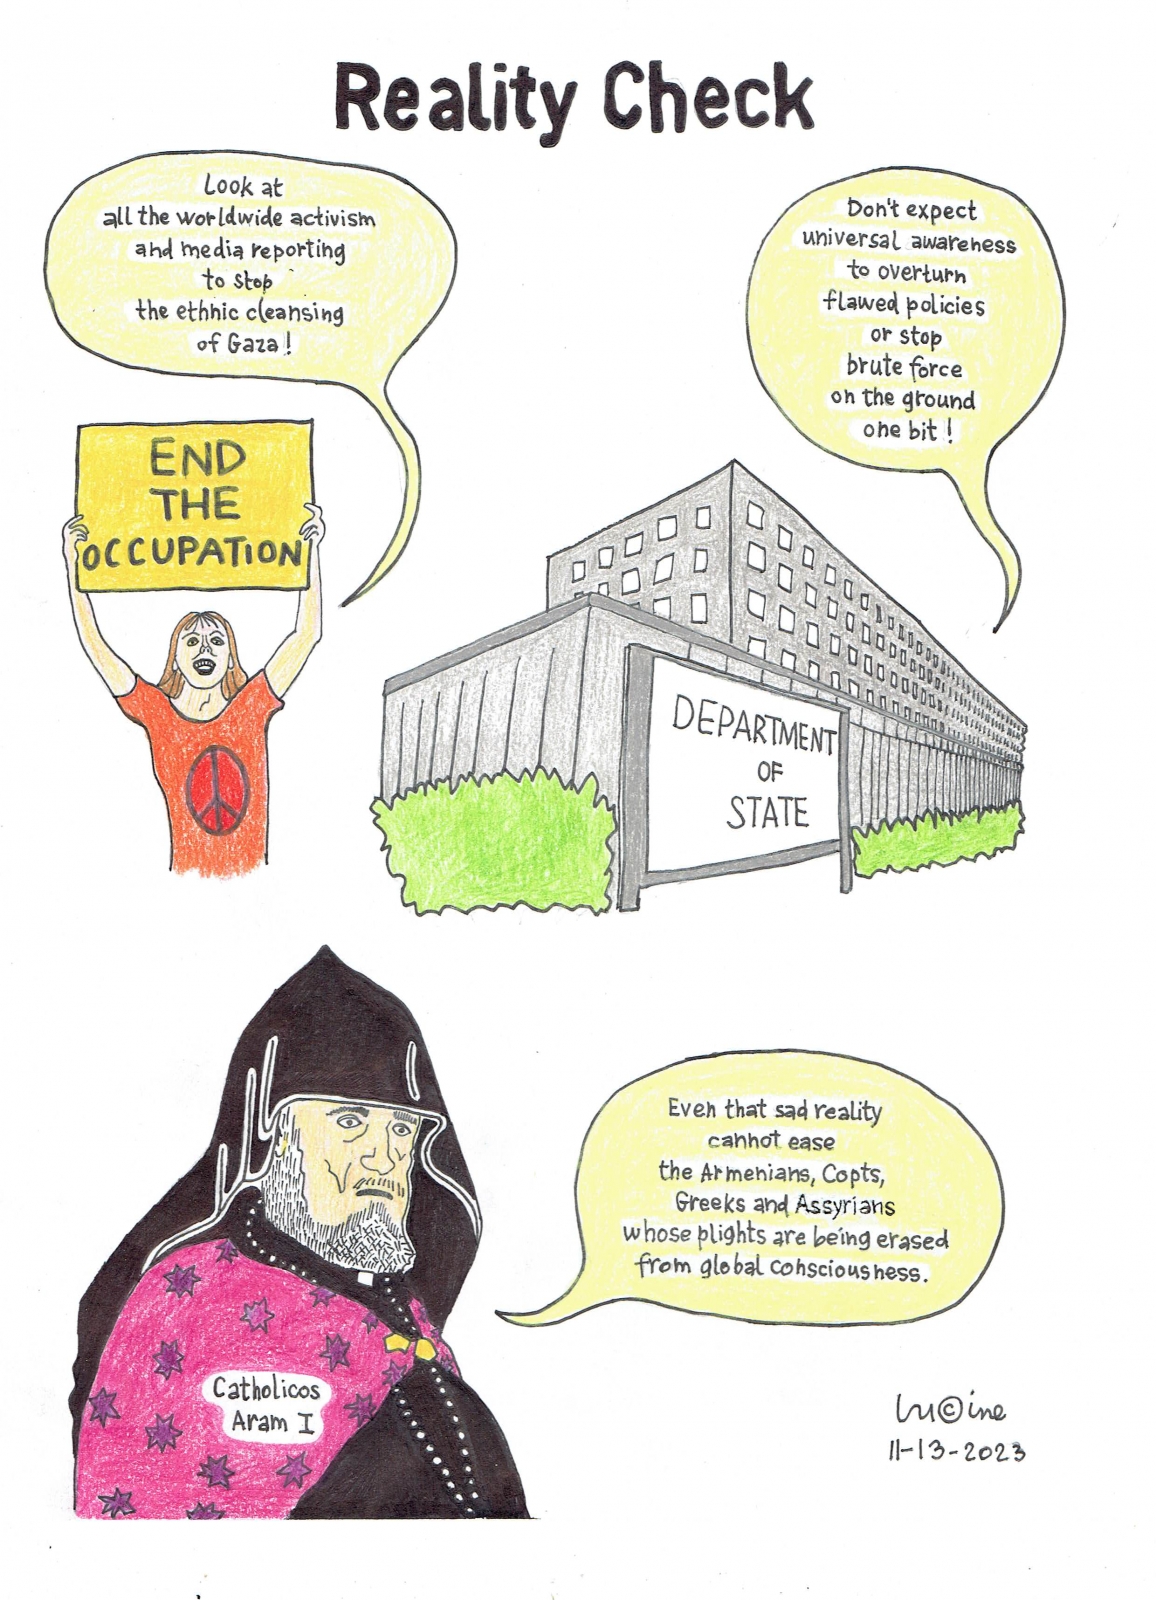 Reality Check
Look at
all the worldwide activism
and media reporting
to stop
the ethnic cleansing
of Gaza!
Don't expect
universal awareness
to overturn
flawed policies
or stop
brute force
on the ground
one bit!
END
THE
OCCUPATION
DEPARTMENT
OF
STATE
Even that sad reality
cannot ease
the Armenians, Copts,
Greeks and Assyrians
whose plights are being erased
from global consciousness.
Catholicos
Aram I
Lu©ine
11-13-2023